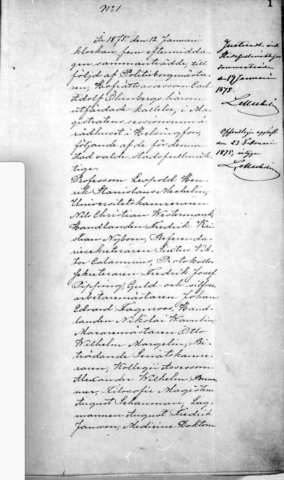 №1
1
År 1875 den 12 Januari
klockan fem eftermidda-
gen sammanträdde, till
följd af Politiborgmästa-
ren, Hofrättsassessoren Carl
Adolf Öhrnbergs härom
utfärdade kallelse, i Ma-
gistratens sessionsrum å
rådhuset i Helsingfors,
följande af de för denna
stad valde Stadsfullmäk-
tige:
Professorn Leopold Hen-
rik Stanislaus Mechelin,
Universitetskamreraren
Nils Christian Westermarck,
Handlanden Fredrik Kri-
stian Nybom, Referenda-
riesekreteraren Victor
Calamnius, Protokolls-
sekreteraren Fredrik Josef
Pipping, Guld och silfver-
arbetaremästaren Johan
Edvard Fagerroos, Hand-
landen Nikolai Wavulin,
Muraremästaren Otto
Wilhelm Margelin, Bi-
trädande Senatskamre-
raren, Kollegii Assessorn
Alexander Wilhelm
Filosofie Magistern
August Schauman, Lag-
mannen August Fredrik
Jansson, Medicine Doktorn
Justeradt vid
Stadsfullmäktiges
sammanträde
den 19 Januari
1875.
L Mechelin
Offentligen uppläst
den 23 Februari
1875, intygar
L Mechelin